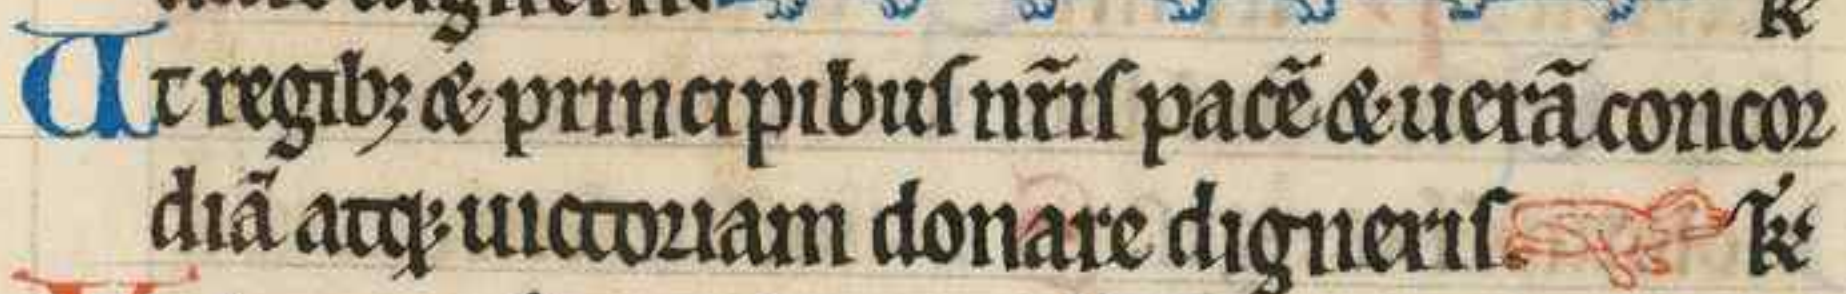 k
Ut regibꝫ & principibus nr̃is pacẽ & uerã concor
diã atqꝫ uictoriam donare digneris k̃